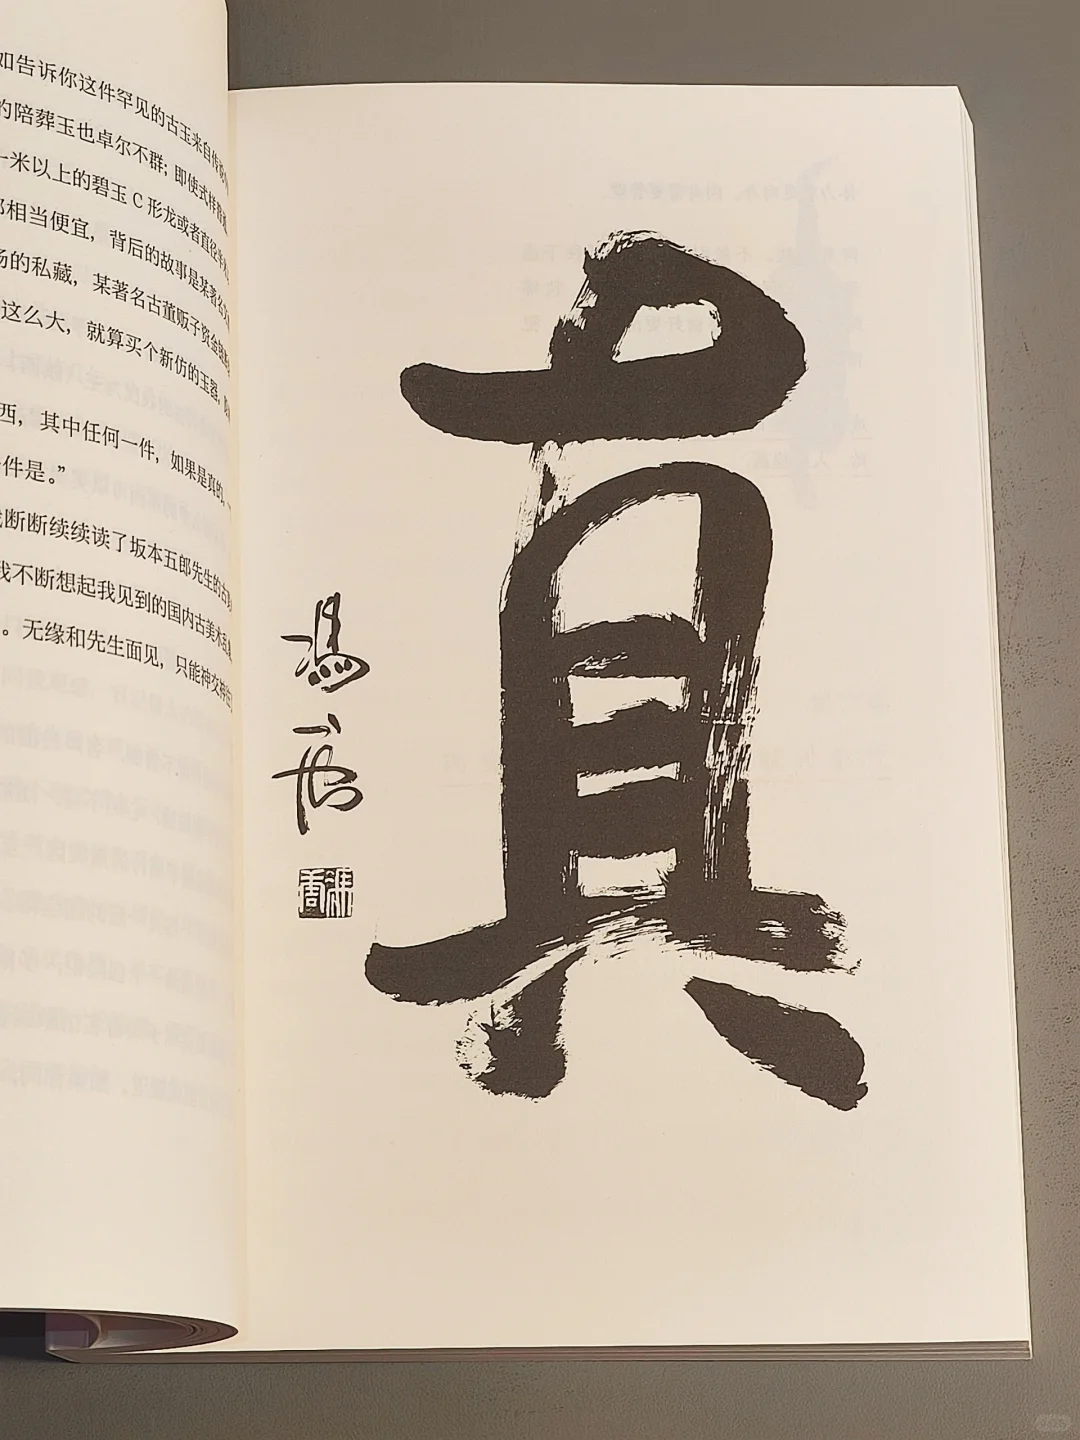 如告诉你这件罕见的古玉来自传
的陪葬玉也卓尔不群；即使式样普通，
一米以上的碧玉C形龙或者直径半米
相当便宜，背后的故事是某著名
场的私藏，某著名古董贩子资金
这么大，就算买个新仿的玉器，
西，其中任何一件，如果是真的，
件是。”
断断续续读了坂本五郎先生的古
我不断想起我见到的国内古美术
。无缘和先生面见，只能神交
真
馮唐
馮唐